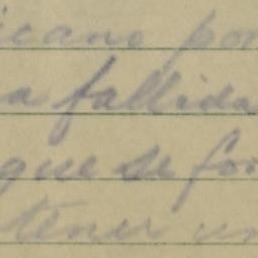 icano por
a fallida
que se for
tener un